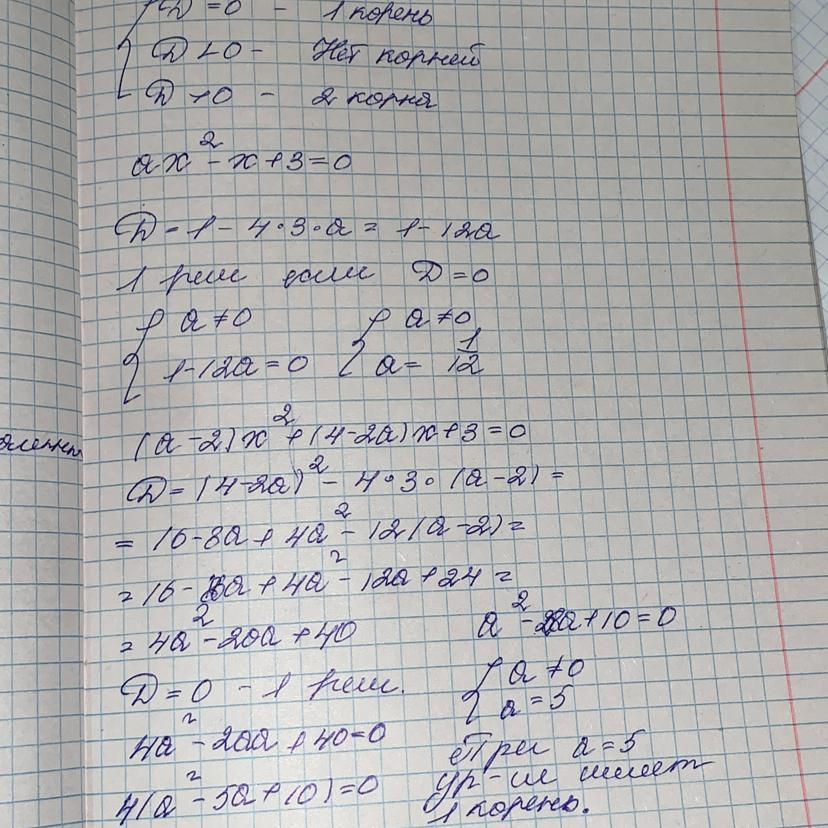 D = 0 - 1 корень
D < 0 - Нет корней
D > 0 - 2 корня
ax² - x + 3 = 0
D = 1 - 4·3·a = 1 - 12a
1 реш если D = 0
{ a ≠ 0 { a ≠ 0
{ 1 - 12a = 0 { a = 1/12
(a - 2)x² + (4 - 2a)x + 3 = 0
D = (4 - 2a)² - 4·3·(a - 2) =
= 16 - 8a + 4a² - 12(a - 2) =
= 16 - 8a + 4a² - 12a + 24 =
= 4a² - 20a + 40
D = 0 - 1 реш.
4a² - 20a + 40 = 0
4(a² - 5a + 10) = 0
a² - a + 10 = 0
{ a ≠ 0
{ a = 5
При a = 5
ур-ие имеет
1 корень.